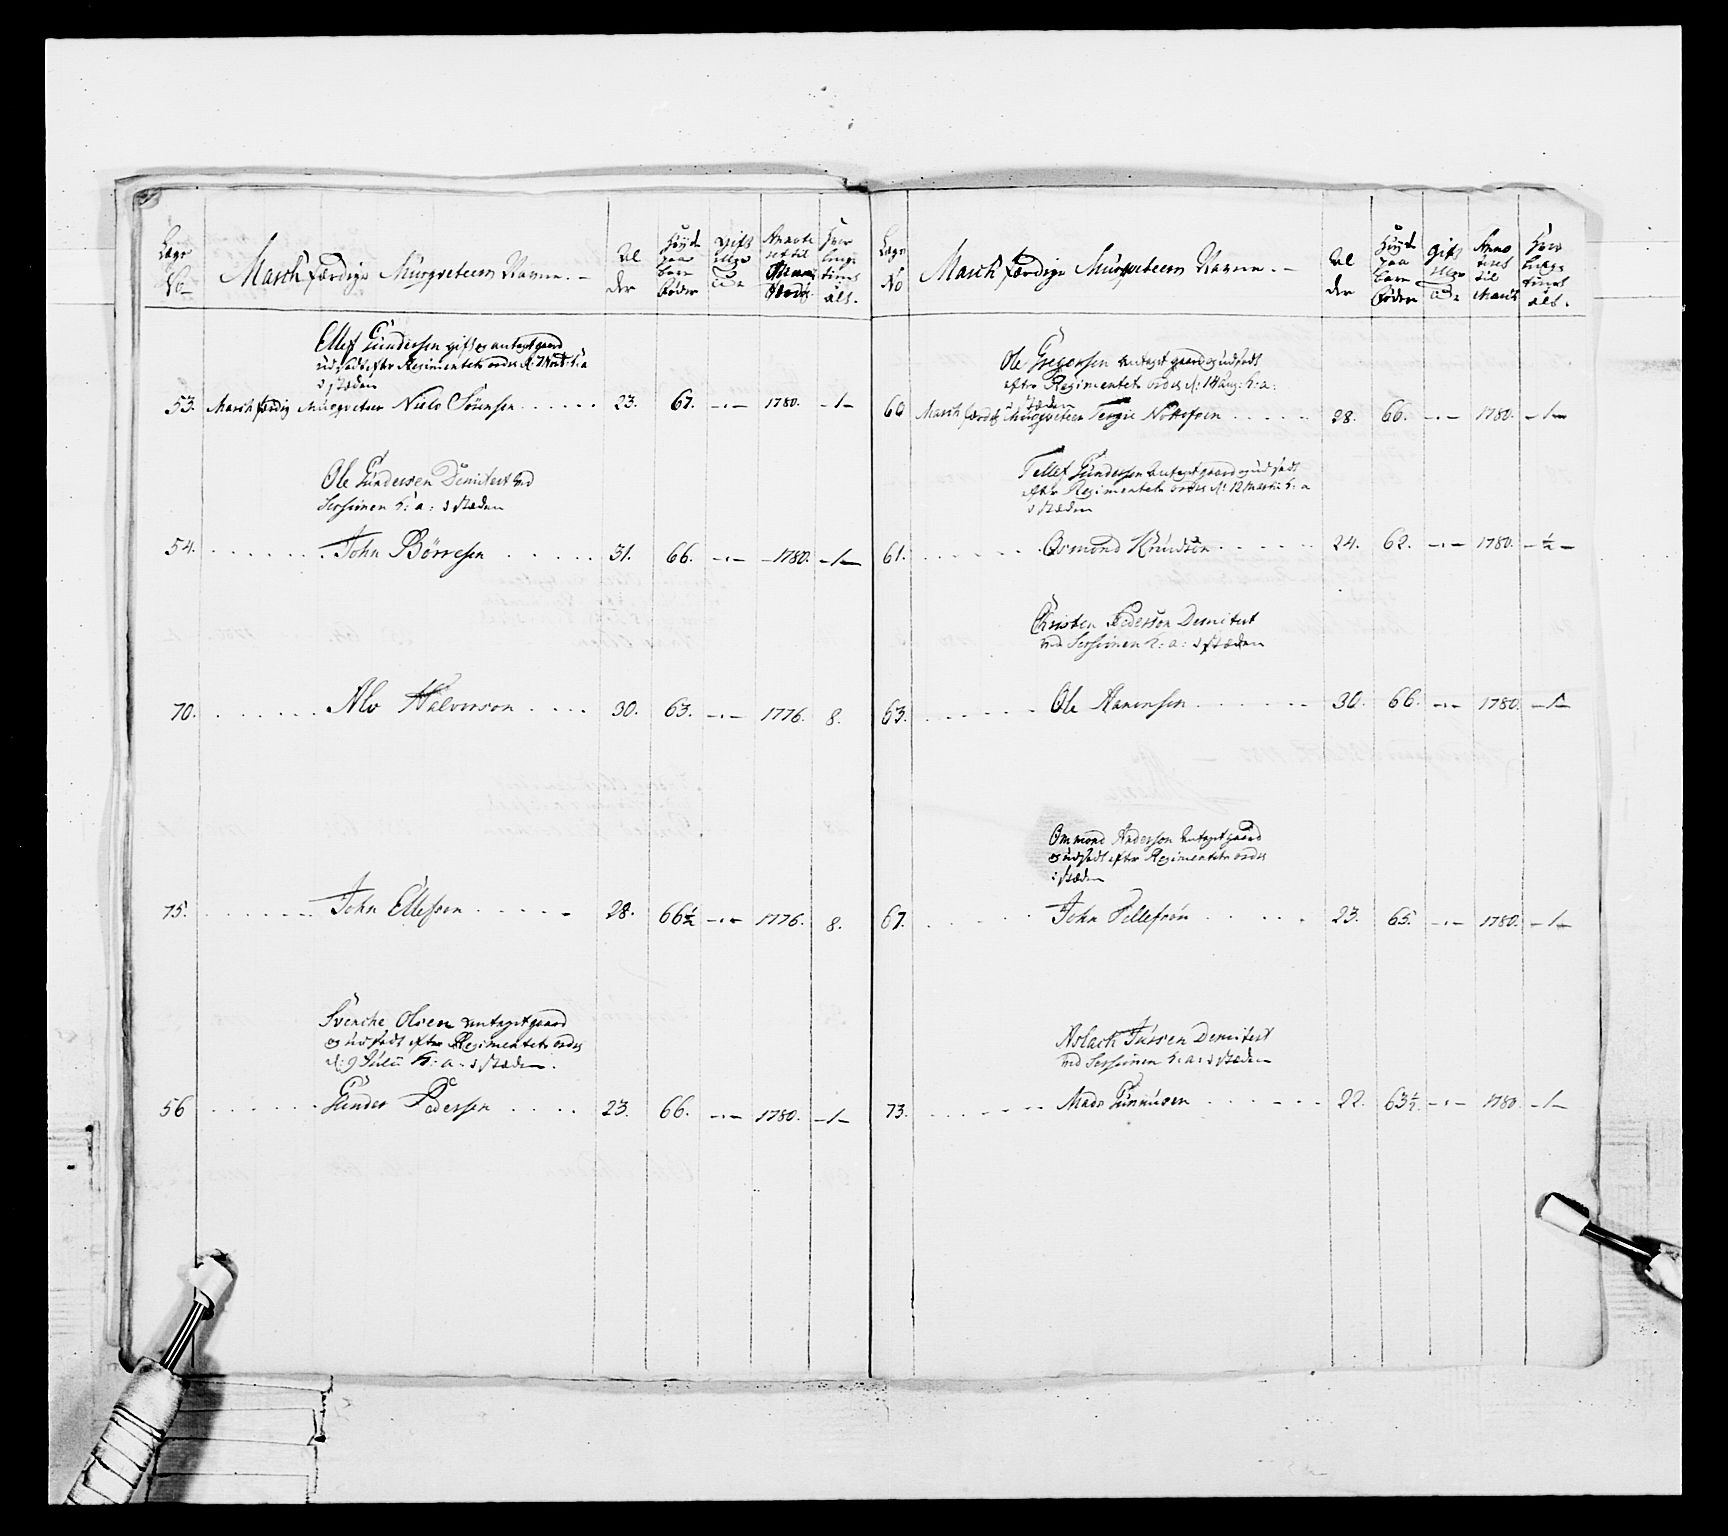 Lægs No
March færdige Musqveteers Navne.
Al der
Høyde paa bare Fødder
Gift eller
Anno
tient
Ellef Gundersen gift og antaget gaard
udsadt efter Regimentets ordre
i stæden
53. March færdig Musqveteer Niels Sörensen 23. 67. -.- 1780. -1-
Ole Gundersen Demitert ved
Sessionen h: a: i stæden
54. John Börresen 31. 66. -.- 1780. -1-
70. Alv Halvorson 30. 63. -.- 1776. 8.
75. John Ellefson 28. 66½ -.- 1776. 8.
Svenche Olsen antaget gaard
og udsadt efter Regimentets ordre
d: 9 Julii h: a: i stæden.
56 Gunder Pedersen 23. 66. -.- 1780. -1-
Lægs No
March færdige Musqveteers Navne.
Al der
Høyde paa bare Fødder
Gift eller
Anno tient til March
Ole Gregersen antaget gaard og udsadt
efter Regimentets ordre d: 18 Aug: h: a:
i stæden
60 March færdig Musqveteer Tergie Nottefsen 28. 66. -.- 1780. -1-
Tellef Gundersen antaget gaard og udsadt
efter Regimentets ordre d: 12 Martii h: a
i stæden
61. Osmond Knudsön 24. 62. -.- 1780. -½-
Christen Pedersön Demitert
ved Sessionen h: a: i stæden
63. Ole Hanensen 30. 66. -.- 1780. -1-
Ommond Anderson antaget gaard
og udsadt efter Regimentets ordre
i stæden
67. John Tellefsön 23. 65. -.- 1780. -1-
Aslach Jussen Demitert
ved Sessionen h: a: i stæden
73. Mads Gunnusen 22. 63½. -.- 1780. -1-